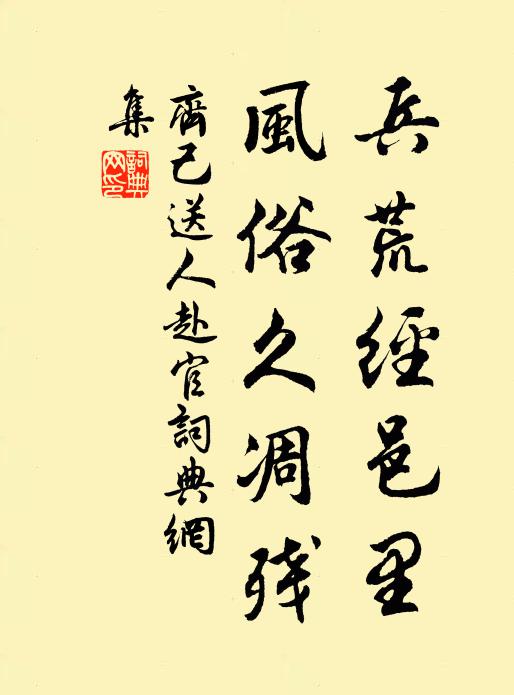 兵荒經邑里
風俗久凋残
齊己送人赴官詞典網
集
詞典網印